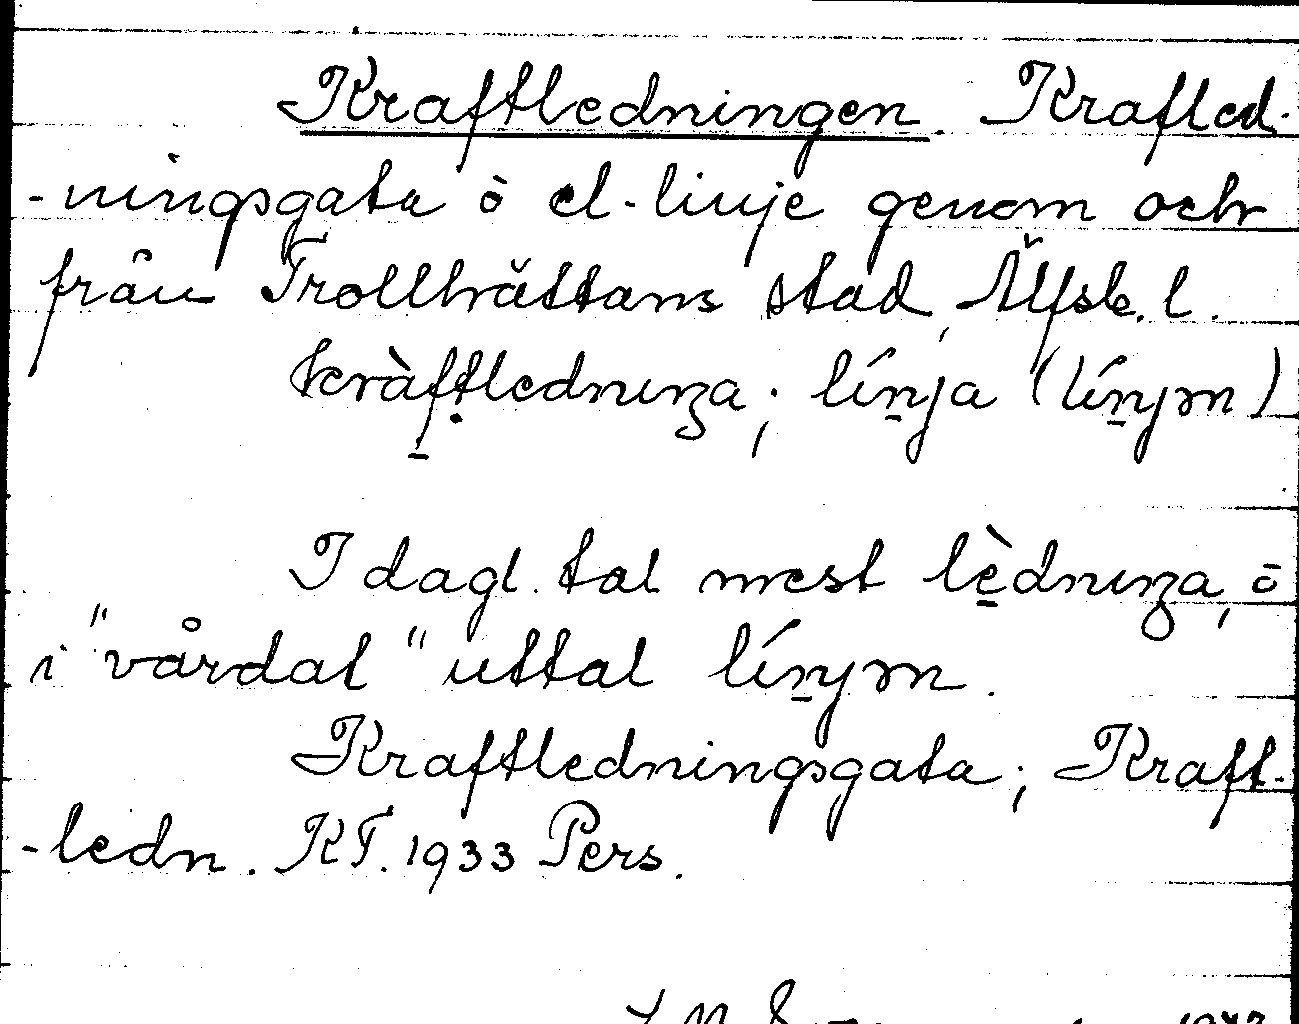 Kraftledningen. Krafled-
-ningsgata ò el-linje genom och
från Trollhättans stad, Älfsb. l.
kràf̱tlednıŋa; líṉja (líṉjɜn)
I dagl. tal mest lè̱dnıŋa, ō
i "vårdat" uttal líṉjɜn.
Kraftledningsgata; Kraft-
-ledn. KF. 1933 Pers.